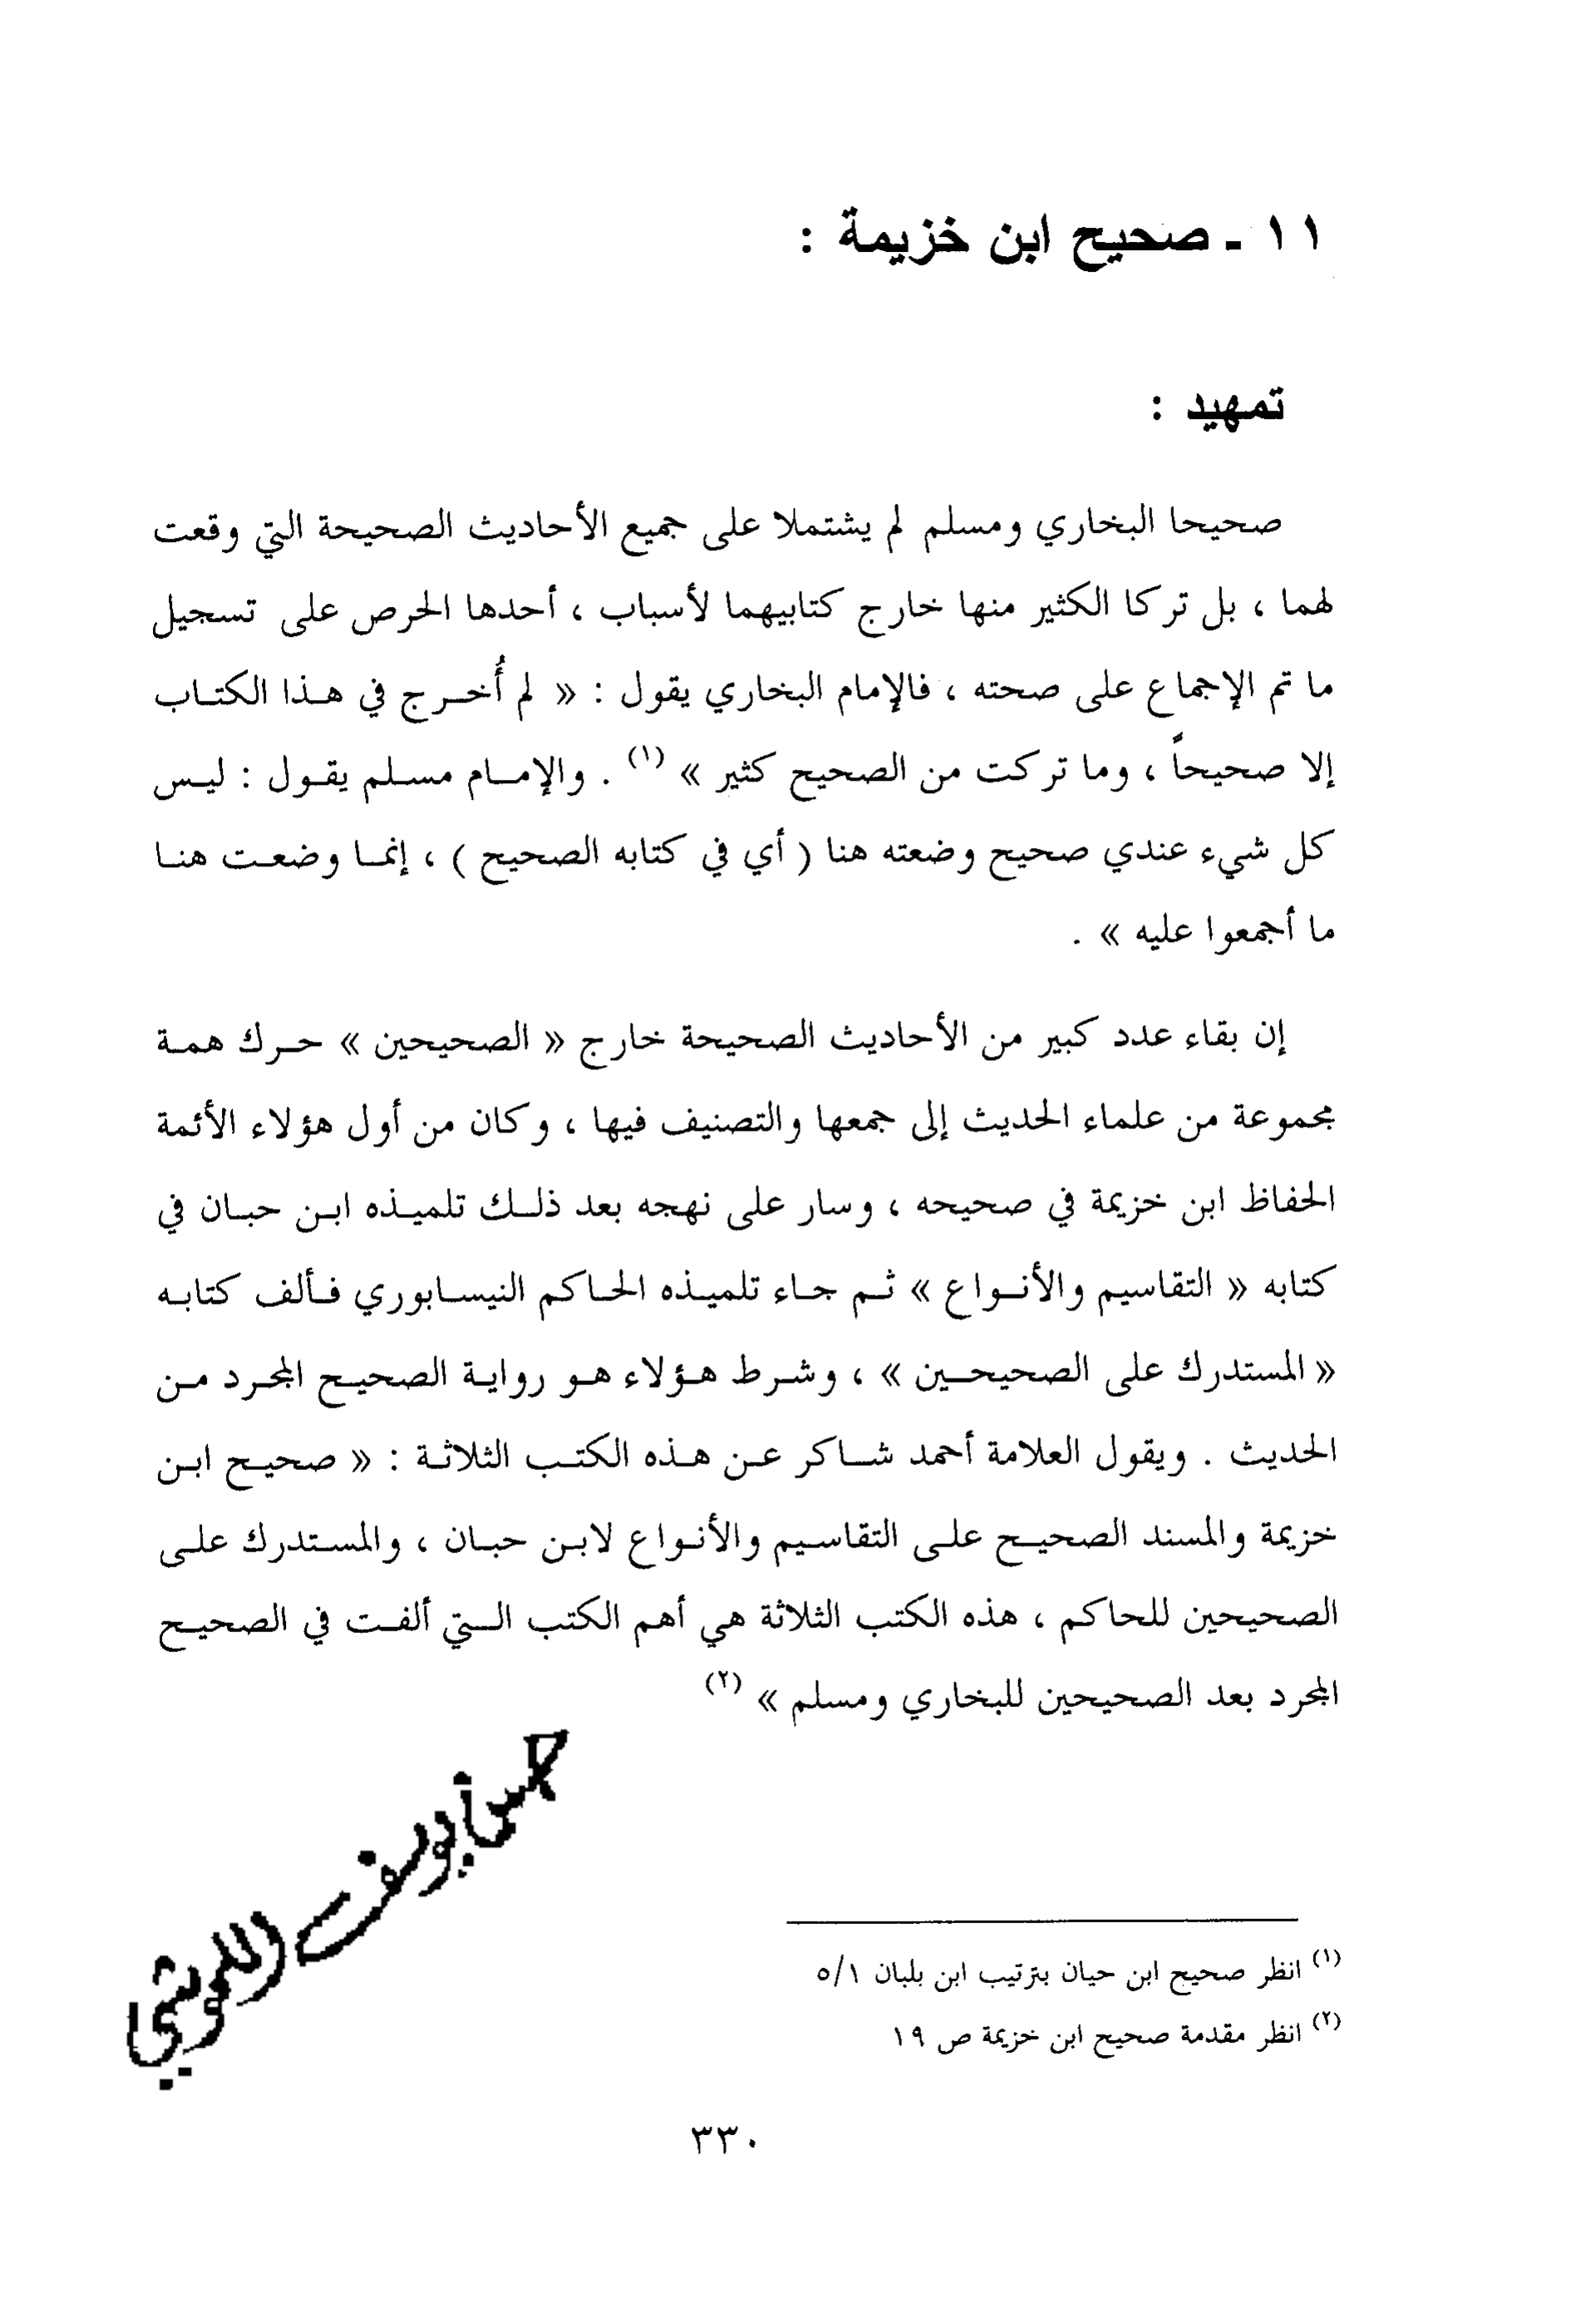 ١١ ـ صحيح ابن خزيمة :
تمهيد :
صحيحا البخاري ومسلم لم يشتملا على جميع الأحاديث الصحيحة التي وقعت
لهما ، بل تركا الكثير منها خارج كتابيهما لأسباب ، أحدها الحرص على تسجيل
ما تم الإجماع على صحته ، فالإمام البخاري يقول : « لم أُخرج في هذا الكتاب
إلا صحيحاً ، وما تركت من الصحيح كثير » (١) . والإمام مسلم يقول : ليس
كل شيء عندي صحيح وضعته هنا ( أي في كتابه الصحيح ) ، إنما وضعت هنا
ما أجمعوا عليه » .
إن بقاء عدد كبير من الأحاديث الصحيحة خارج « الصحيحين » حرك همة
مجموعة من علماء الحديث إلى جمعها والتصنيف فيها ، وكان من أول هؤلاء الأئمة
الحفاظ ابن خزيمة في صحيحه ، وسار على نهجه بعد ذلك تلميذه ابن حبان في
كتابه « التقاسيم والأنواع » ثم جاء تلميذه الحاكم النيسابوري فألف كتابه
« المستدرك على الصحيحين » ، وشرط هؤلاء هو رواية الصحيح المجرد من
الحديث . ويقول العلامة أحمد شاكر عن هذه الكتب الثلاثة : « صحيح ابن
خزيمة والمسند الصحيح على التقاسيم والأنواع لابن حبان ، والمستدرك على
الصحيحين للحاكم ، هذه الكتب الثلاثة هي أهم الكتب التي ألفت في الصحيح
المجرد بعد الصحيحين للبخاري ومسلم » (٢)
(١) انظر صحيح ابن حيان بترتيب ابن بلبان ٥/١
(٢) انظر مقدمة صحيح ابن خزيمة ص ١٩
٣٣٠